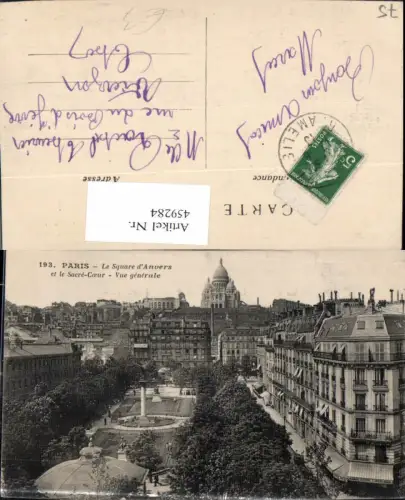 75
Bonjour amical
Marcel
Mlle
rue du Bois d'Yèvre
Vierzon
Cher
AMELIE
5c
CARTE
ndance
Adresse
Artikel Nr.
459284
193. PARIS - Le Square d'Anvers
et le Sacré-Cœur - Vue générale